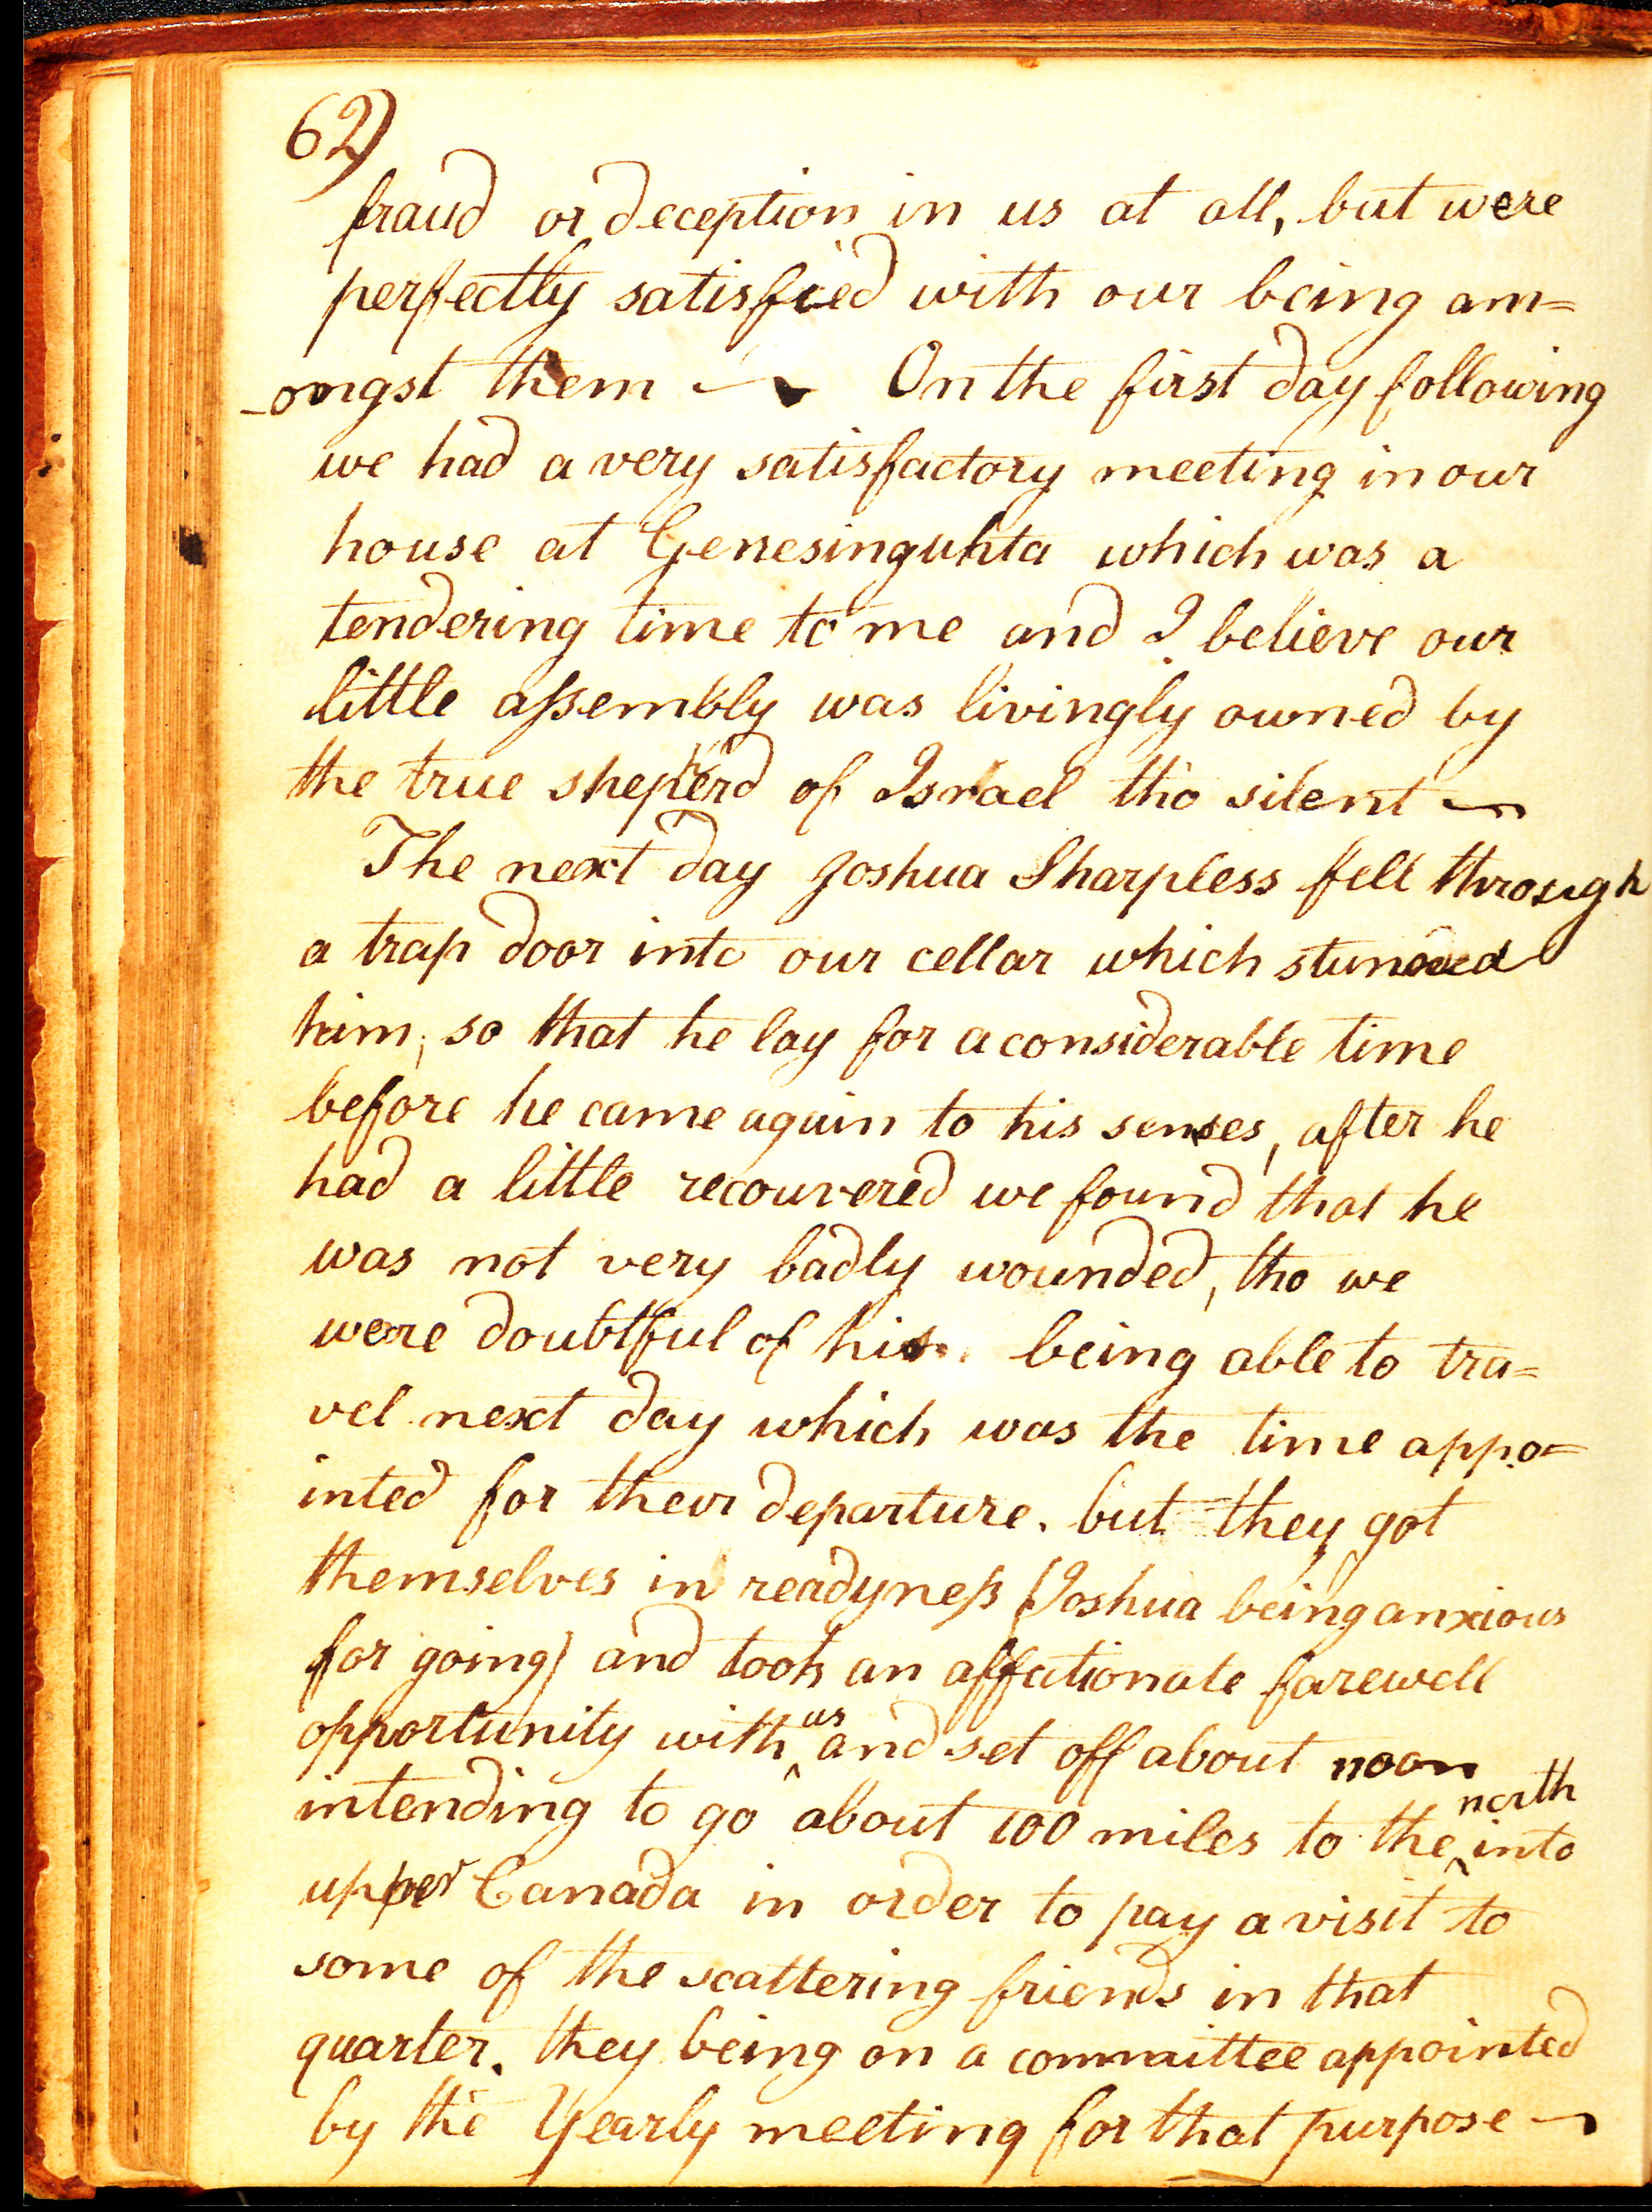 62)
fraud or deception in us at all, but were
perfectly satisfied with our being am=
-ongst them ~ On the first day following
we had a very satisfactory meeting in our
house at Genesinguhta which was a
tendering time to me and I believe our
little aſsembly was livingly owned by
the true shepherd of Israel tho silent ~
The next day Joshua Sharpless fell through
a trap door into our cellar which stunned
him, so that he lay for a considerable time
before he came again to his senses, after he
had a little recouvered we found that he
was not very badly wounded, tho we
were doubtful of his being able to tra=
vel next day which was the time appo=
inted for their departure. but they got
themselves in readyneſs (Joshua being anxious
for going) and took an affectionate farewell
opportunity with ^us and set off about noon
intending to go about 100 miles to the ^north into
upper Canada in order to pay a visit to
some of the scattering friends in that
quarter. they being on a committee appointed
by the Yearly meeting for that purpose ~